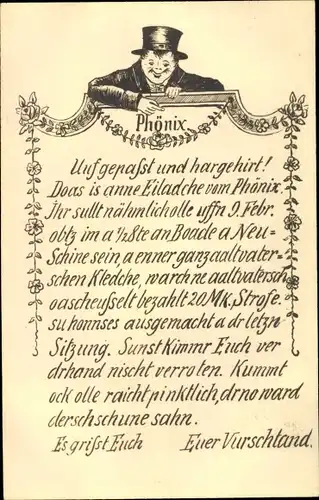 Phönix
Uufgepaßt und hargehirt!
Doas is anne Eiladche vom Phönix.
Ihr sullt nähmlich olle uffn 9. Febr.
obtz im a ½8te an Boade a Neu-
Schine sein, a enner ganz aaltvater-
schen Kledche, war ch ne aaltvatersch
oascheußelt bezahlt 20 Mk, Strofe.
su honnses ausgemacht a dr letzn
Sitzung. Sunst kimmr Euch ver
drhand nischt verroten. Kummt
ock olle raicht pinktlich, dr no ward
dersch schune sahn.
Es grißt Euch Euer Vurschtand.